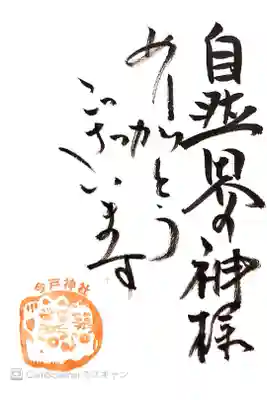 自然界の神様
ありがとう
ございます
今戸神社
CamScanner でスキャン